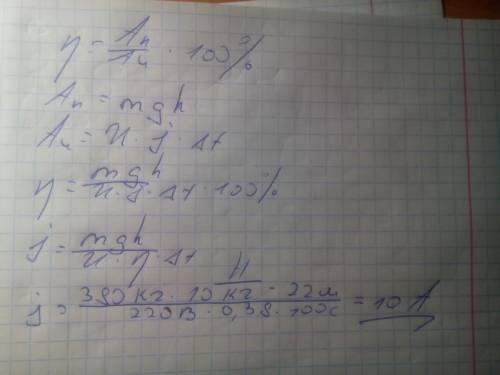 η = Aп / Aч · 100%
Aп = mgh
Aч = U · j · Δt
η = mgh / U · j · Δt · 100%
j = mgh / U · η · Δt
j = 380кг · 10 Н/кг · 22м / 220В · 0,38 · 100с = 10 А